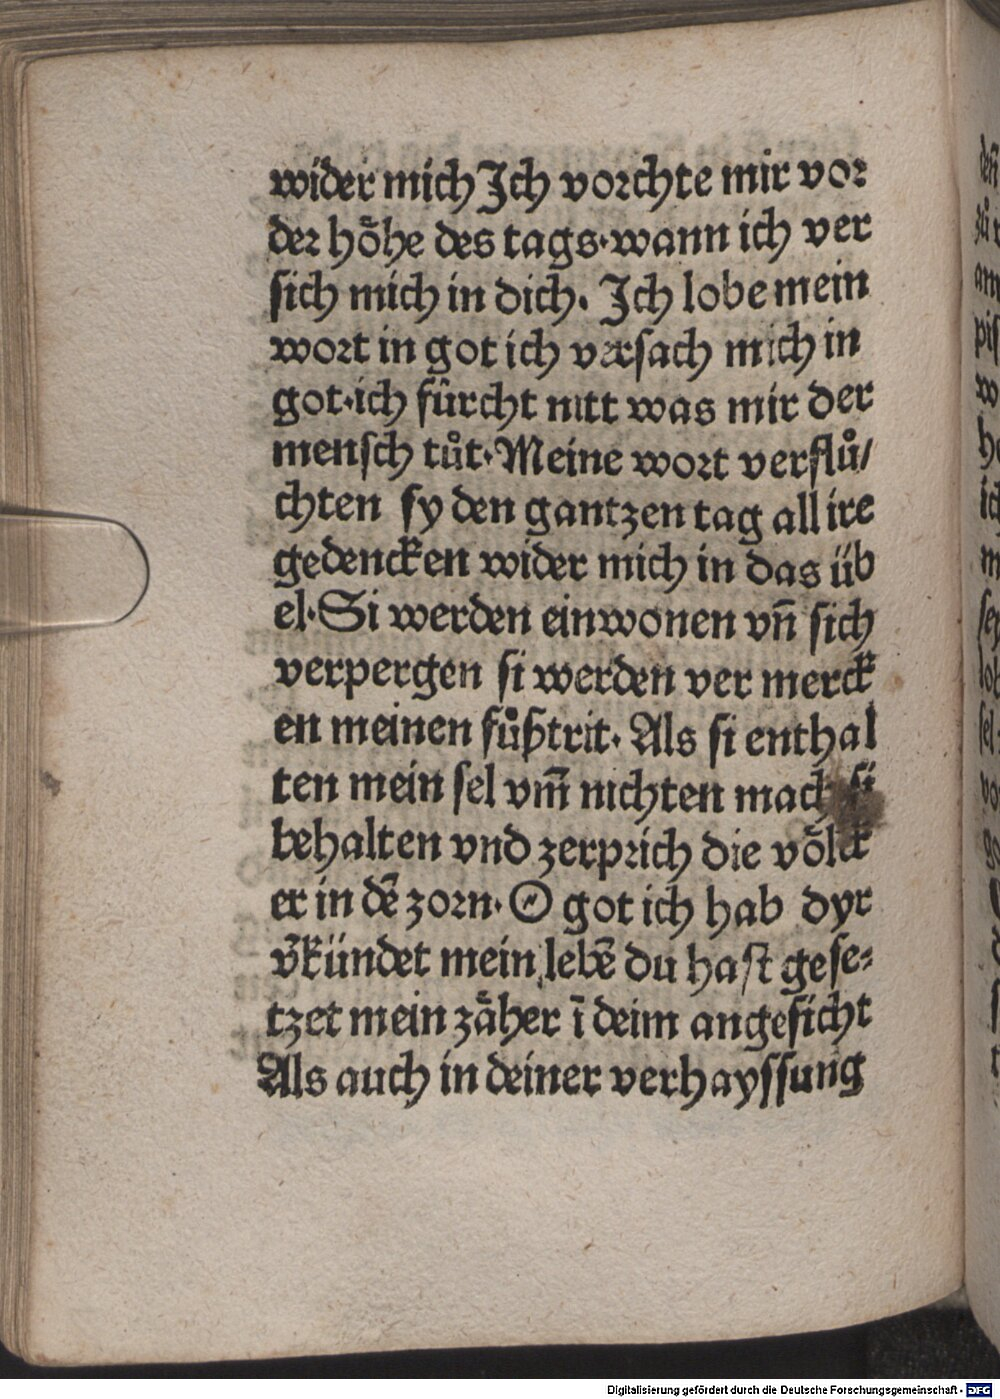 wider mich Ich vorchte mir vor
der hoͤhe des tags·wann ich ver
sich mich in dich. Ich lobe mein
wort in got ich versach mich in
got·ich fuͤrcht nitt was mir der
mensch tuͦt·Meine wort verfluͦ/
chten sy den gantzen tag all ire
gedencken wider mich in das üb
el·Si werden einwonen vn̄ sich
verpergen si werden ver merck
en meinen fuͦßtrit. Als si enthal
ten mein sel vm̄ nichten mach si
behalten vnd zerprich die voͤlck
er in dē zorn·O got ich hab dyr
v̄kündet mein lebē du hast gese⸗
tzet mein zaͤher ī deim angesicht
Als auch in deiner verhayssung
Digitalisierung gefördert durch die Deutsche Forschungsgemeinschaft - DFG